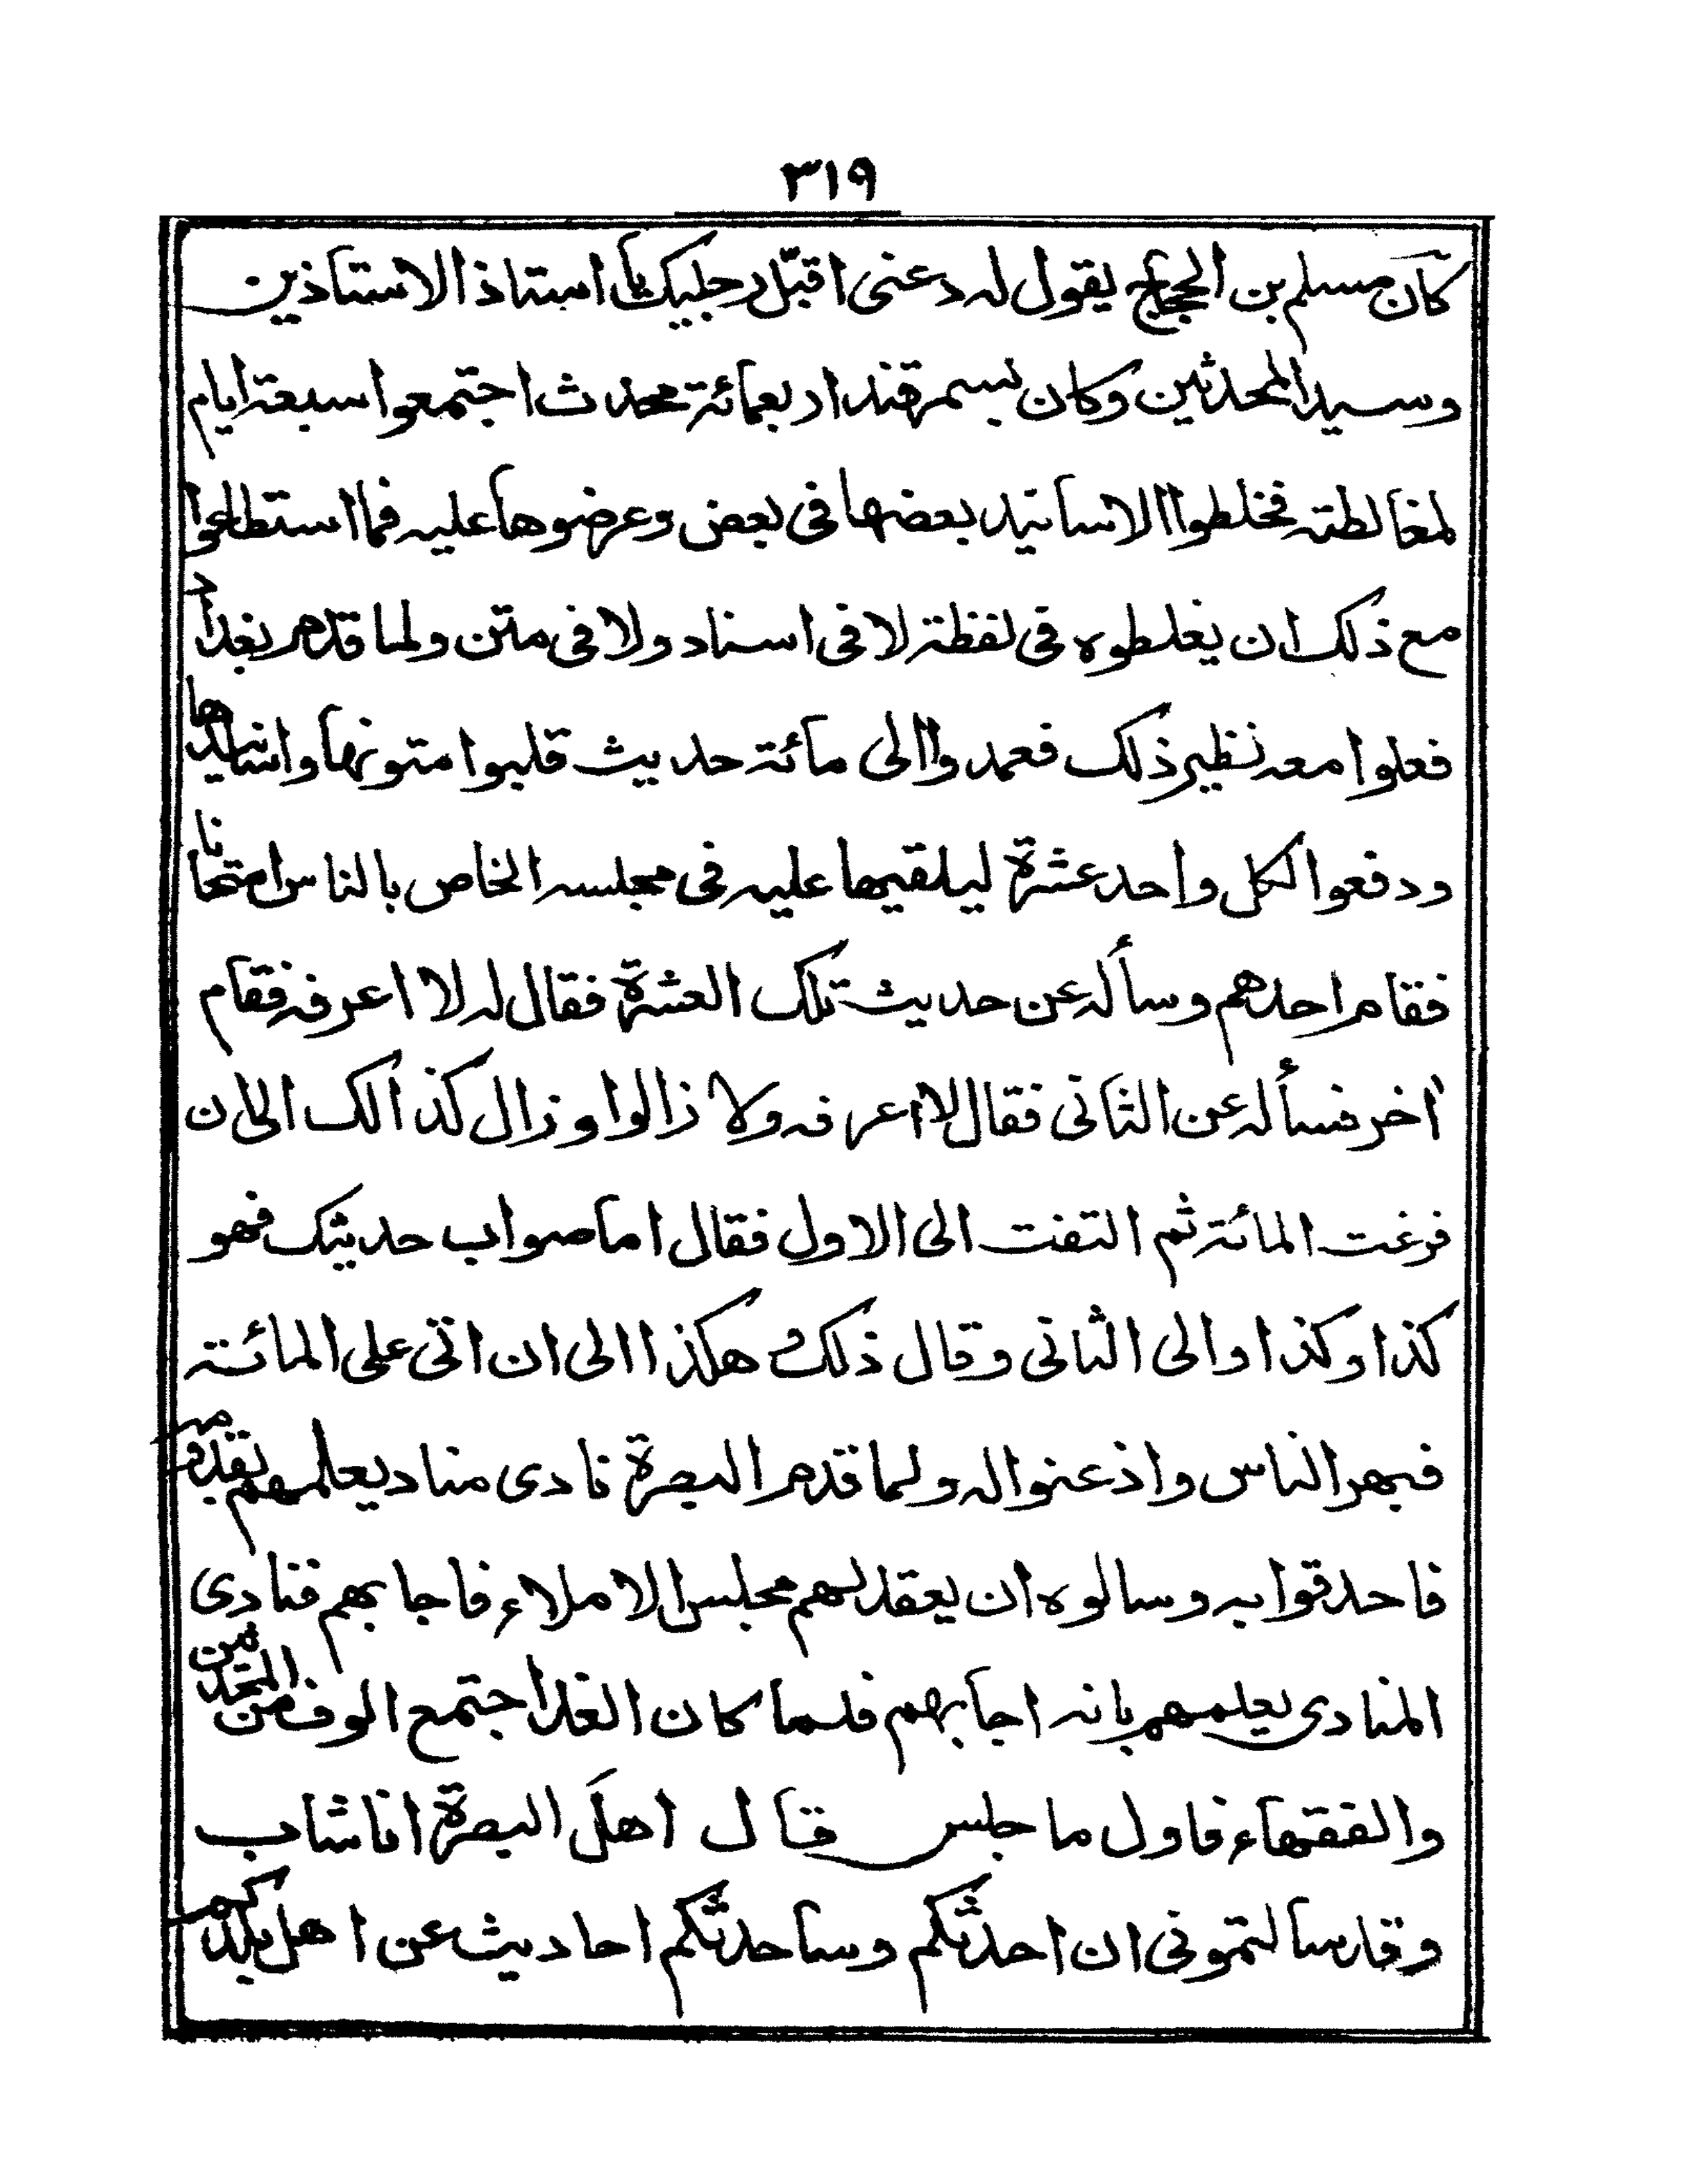 ٣١٩
كان مسلم بن الحجاج يقول له دعنى اقبّل رجليك يا استاذ الاستاذين
وسيد المحدثين وكان بسمرقند اربعمائة محدث اجتمعوا سبعة ايام
لمغالطته فخلطوا الاسانيد بعضها فى بعض وعرضوها عليه فما استطاعوا
مع ذلك ان يغلطوه فى لفظة لا فى اسناد ولا فى متن ولما قدم بغداد
فعلوا معه نظير ذلك فعمدوا الى مائة حديث قلبوا متونها واسانيدها
ودفعوا لكل واحد عشرة ليلقيها عليه فى مجلسه الخاص بالناس امتحانا
فقام احدهم وسأله عن حديث تلك العشرة فقال له لا اعرفه فقام
اخر فسأله عن الثانى فقال لا اعرفه ولا زالوا وزال كذالك الى ان
فرغت المائة ثم التفت الى الاول فقال اما صواب حديثك فهو
كذا وكذا والى الثانى وقال ذلك هكذا الى ان اتى على المائة
فبهر الناس واذعنوا له ولما قدم البصرة نادى مناد يعلمهم بقدومه
فاحدقوا به وسالوه ان يعقد لهم مجلس الاملاء فاجابهم فنادى
المنادى يعلمهم بانه اجابهم فلما كان الغد اجتمع الوف من المحدثين
والفقهاء فاول ما جلس قال اهل البصرة انا شاب
وقد سالتمونى ان احدثكم وساحدثكم احاديث عن اهل بلدكم